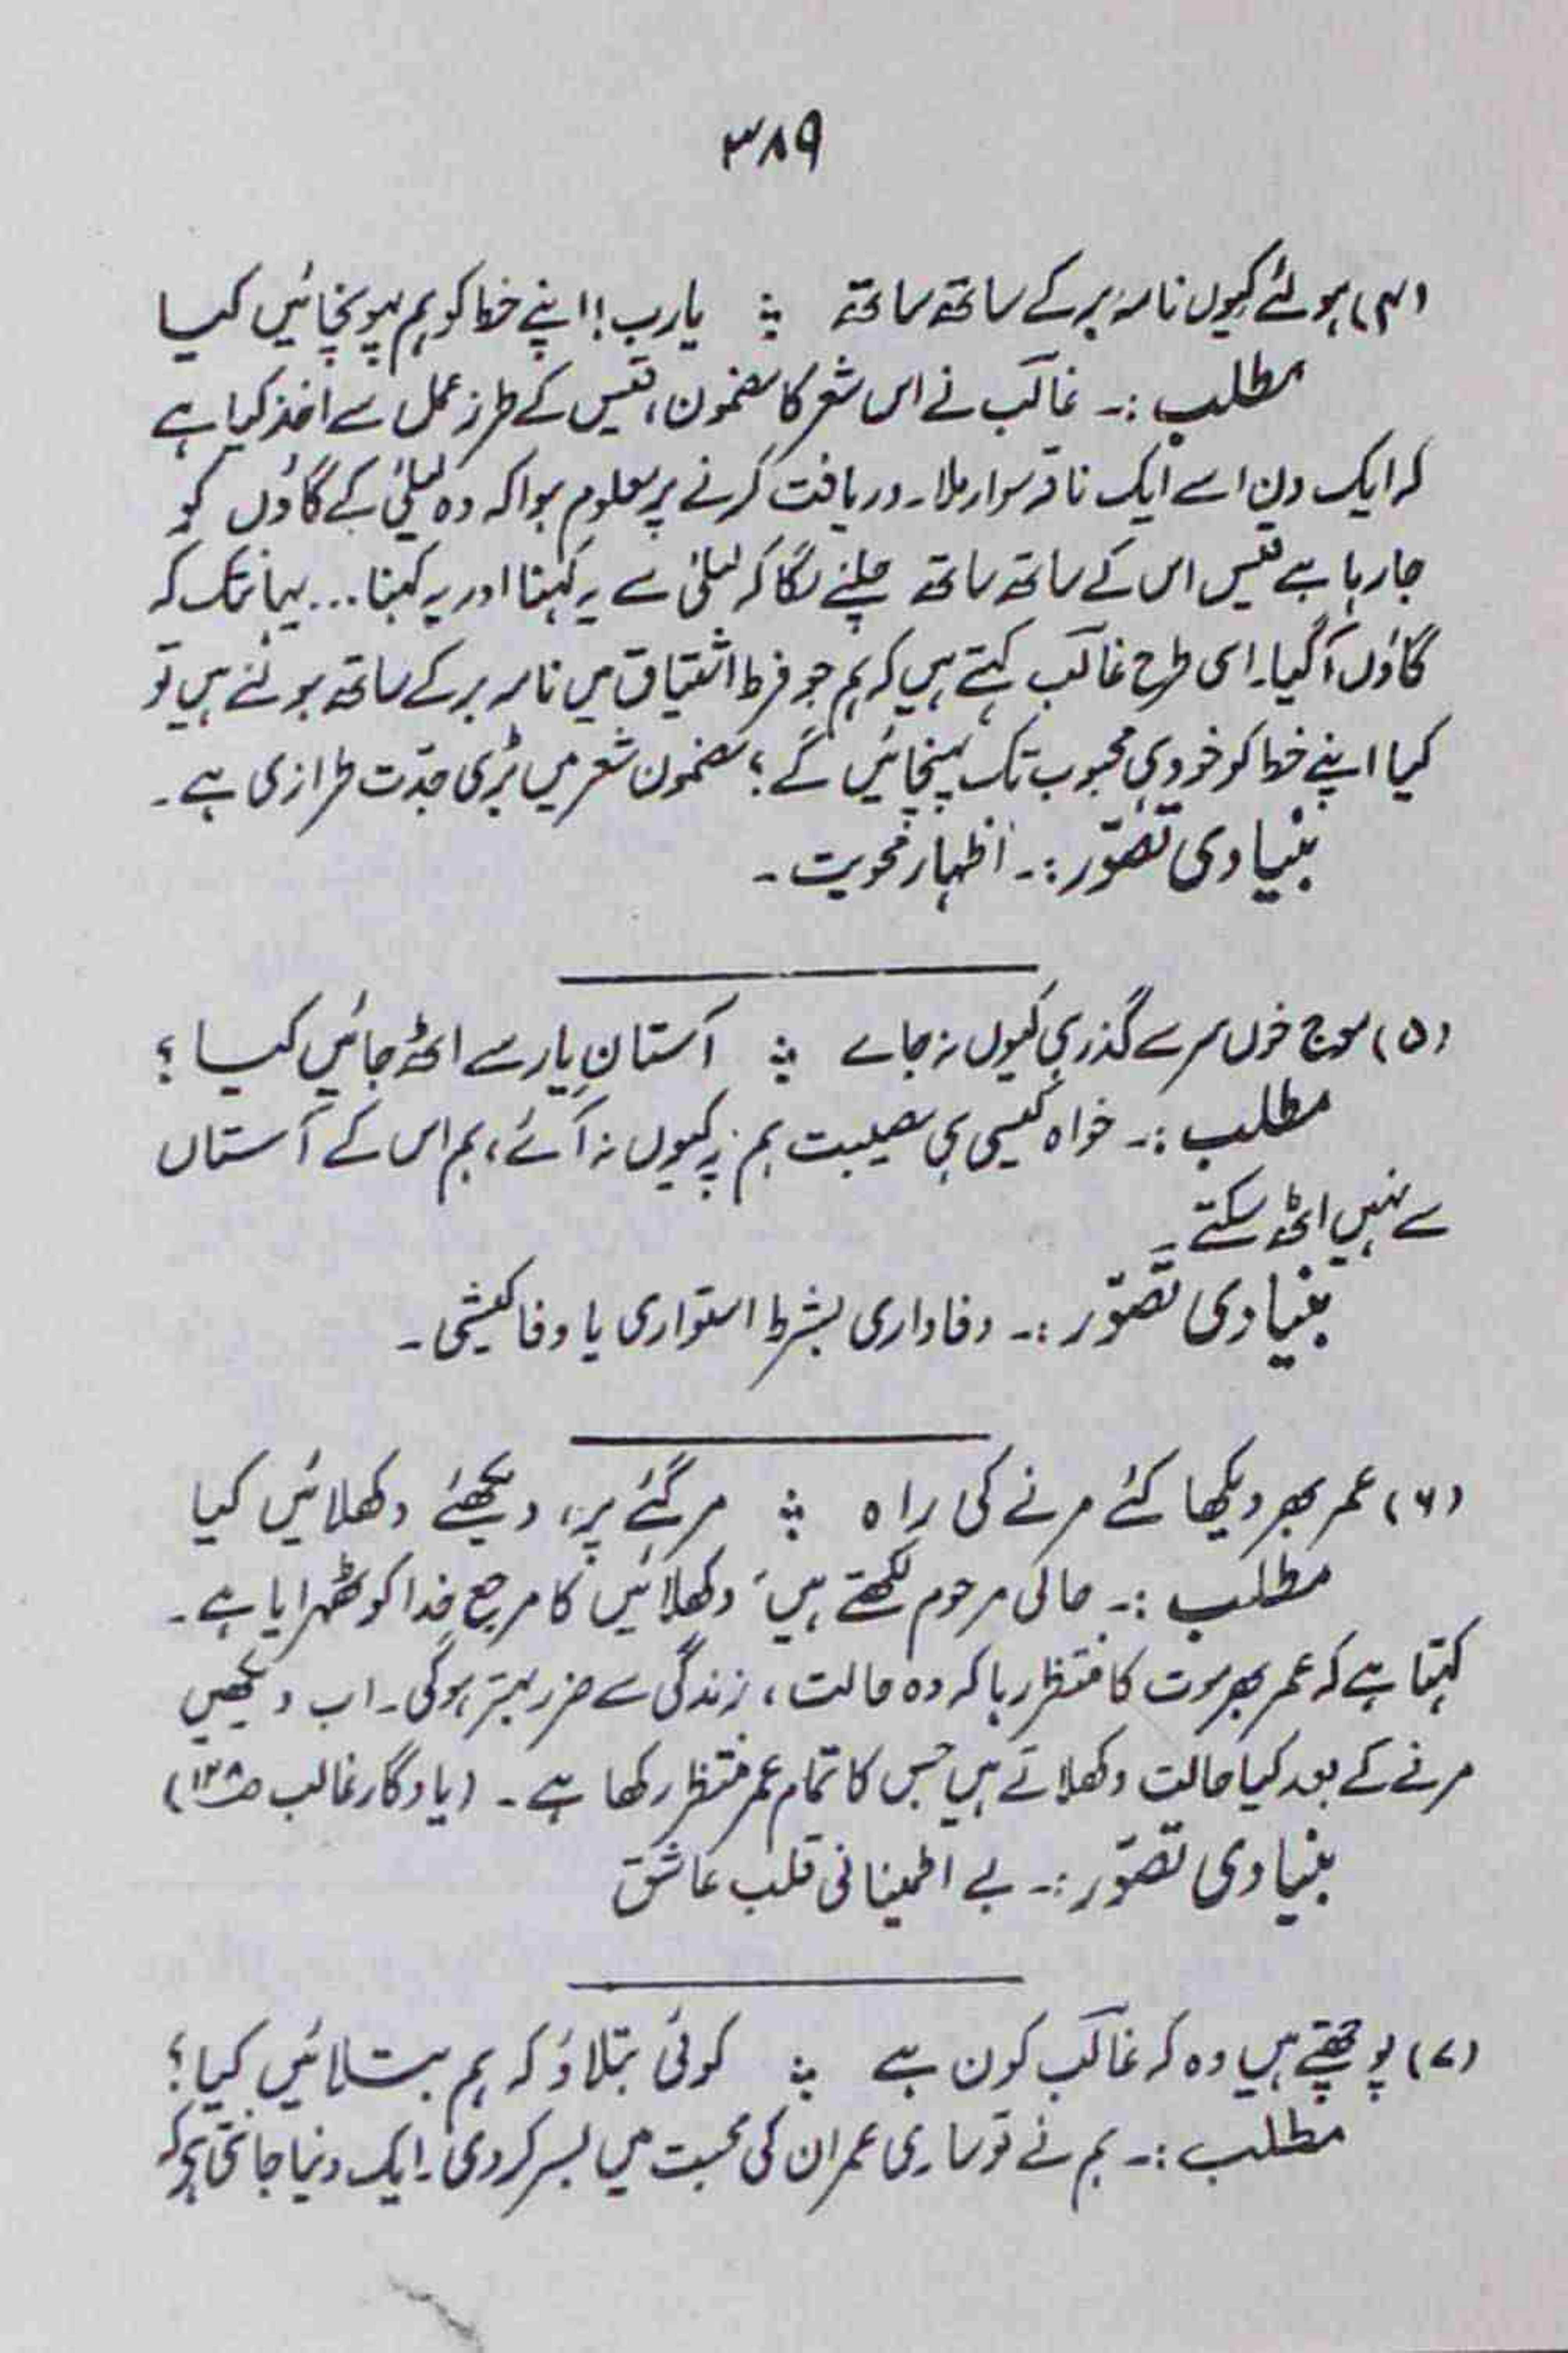 ۳۸۹
(۴) ہولئے کیوں نامہ بر کے ساتھ ساتھ ؞ یارب! اپنے خط کو ہم پہونچائیں کیا
مطلب :۔ غالب نے اس شعر کا مضمون، قیس کے طرز عمل سے اخذ کیا ہے
کہ ایک دن اسے ایک ناقہ سوار ملا۔ دریافت کرنے پر معلوم ہوا کہ وہ لیلیٰ کے گاؤں کو
جارہا ہے قیس اس کے ساتھ ساتھ چلنے لگا کہ لیلیٰ سے یہ کہنا اور یہ کہنا... یہانتک کہ
گاؤں آگیا۔ اسی طرح غالب کہتے ہیں کہ ہم جو فرط اشتیاق میں نامہ بر کے ساتھ ہولئے ہیں تو
کیا اپنے خط کو خود ہی محبوب تک پہنچائیں گے؟ مضمون شعر میں بڑی جدّت طرازی ہے۔
بنیادی تصوّر :۔ اظہار محویت۔
(۵) موج خوں سر سے گذر ہی کیوں نہ جائے ؞ آستانِ یار سے اٹھ جائیں کیا ؟
مطلب :۔ خواہ کیسی ہی مصیبت ہم پر کیوں نہ آئے، ہم اس کے آستاں
سے نہیں اٹھ سکتے۔
بنیادی تصوّر :۔ وفاداری بشرط استواری یا وفا کیشی۔
(۶) عمر بھر دیکھا کئے مرنے کی راہ ؞ مرگئے پر، دیکھئے دکھلائیں کیا
مطلب :۔ حالی مرحوم لکھتے ہیں "دکھلائیں کا مرجع خدا کو ٹھہرایا ہے۔
کہتا ہے کہ عمر بھر موت کا منتظر رہا کہ وہ حالت، زندگی سے ضرر بہتر ہوگی۔ اب دیکھیں
مرنے کے بعد کیا حالت دکھلاتے ہیں جس کا تمام عمر منتظر رکھا ہے۔ (یادگار غالب ص۱۲۸)
بنیادی تصوّر :۔ بے اطمینانی قلب عاشق
(۷) پوچھتے ہیں وہ کہ غالب کون ہے ؞ کوئی بتلاؤ کہ ہم بتلائیں کیا؟
مطلب :۔ ہم نے تو ساری عمر ان کی محبت میں بسر کردی۔ ایک دنیا جانتی ہے کہ